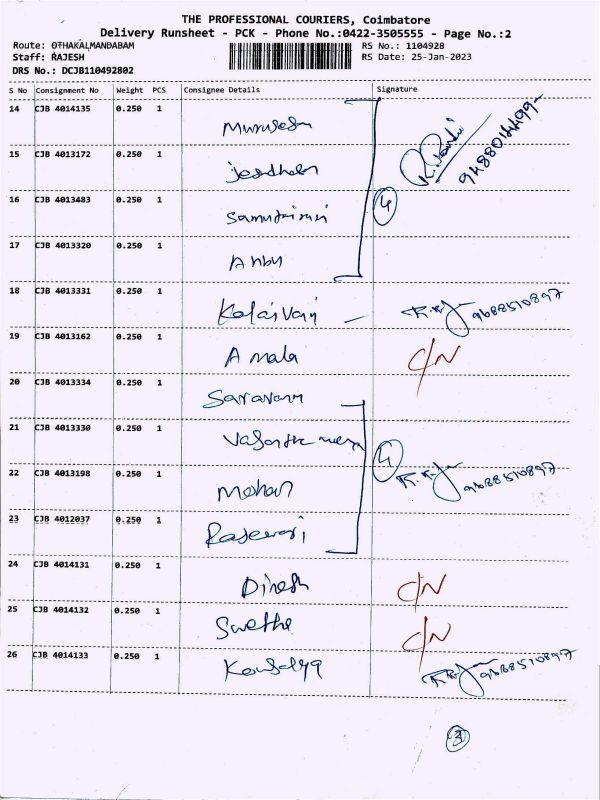 THE PROFESSIONAL COURIERS, Coimbatore
Delivery Runsheet - PCK - Phone No.:0422-3505555 - Page No.:2
Route: OTHAKALMANDABAM
RS No.: 1104928
Staff: RAJESH
RS Date: 25-Jan-2023
DRS No.: DCJB110492802
S No Consignment No Weight PCS Consignee Details Signature
14 CJB 4014135 0.250 1 Murugesh
15 CJB 4013172 0.250 1
9488014499
16 CJB 4013483 0.250 1
4
17 CJB 4013320 0.250 1 Anbu
18 CJB 4013331 0.250 1 Kalaivani 9688510897
19 CJB 4013162 0.250 1 Amala C/N
20 CJB 4013334 0.250 1 Saravann
21 CJB 4013330 0.250 1
4
22 CJB 4013198 0.250 1 Mohan 9688510897
23 CJB 4012037 0.250 1
24 CJB 4014131 0.250 1 Dinesh C/N
25 CJB 4014132 0.250 1 Swetha C/N
26 CJB 4014133 0.250 1 Kousalya 9688510897
3